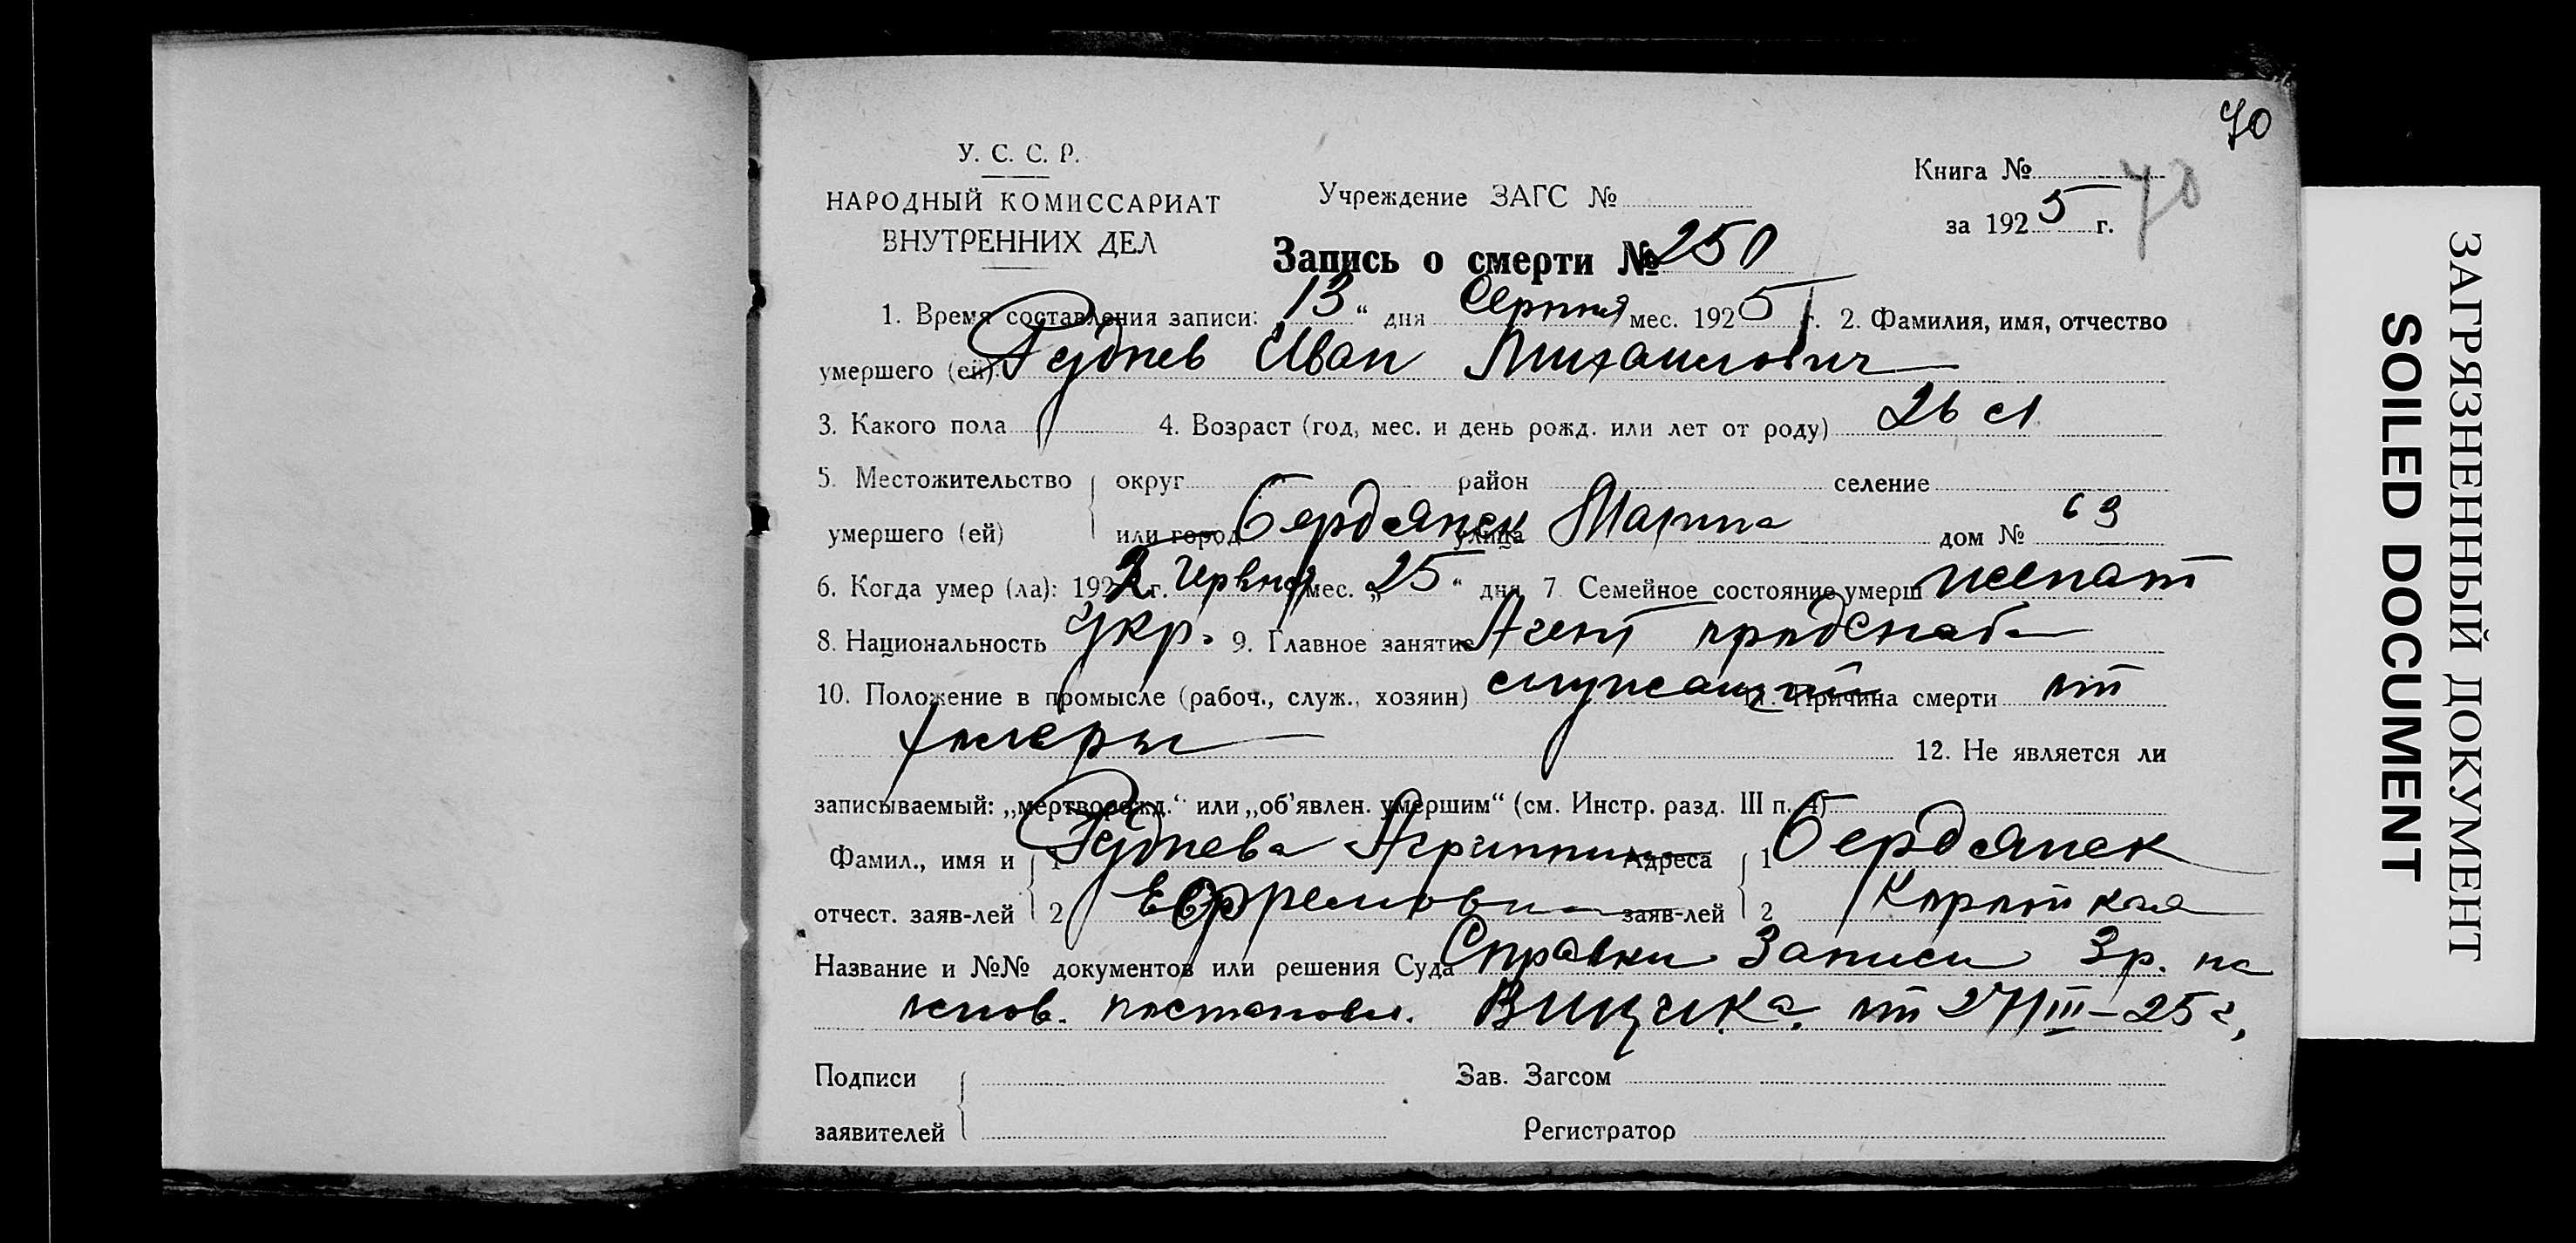 70
У. С. С. Р.
НАРОДНЫЙ КОМИССАРИАТ
ВНУТРЕННИХ ДЕЛ
Учреждение ЗАГС №
Книга № 70
за 1925 г.
Запись о смерти № 250
1. Время составления записи: 13 " дня Серпня мес. 1925 г. 2. Фамилия, имя, отчество
умершего (ей). Руднев Иван Михаилович
3. Какого пола 4. Возраст (год, мес. и день рожд. или лет от роду) 26 л
5. Местожительство округ район селение
умершего (ей) или город Бердянск улица дом № 63
6. Когда умер (ла): 1922 г. Червня мес. „25" дня 7. Семейное состояние умерш женат
8. Национальность Укр. 9. Главное занятие Агент продснаба
10. Положение в промысле (рабоч., служ., хозяин) служащий 11. Причина смерти от
холеры 12. Не является ли
записываемый: „мертворожд." или „об'явлен. умершим" (см. Инстр. разд. III п. 4)
Фамил., имя и 1 Руднева Агриппина Адреса 1 Бердянск
отчест. заяв-лей 2 Ефремовна заяв-лей 2 Короткая
Название и №№ документов или решения Суда Справки Записи Зр. на
основ. постановл. ВУЦИКа от 27/III-25 г.
Подписи Зав. Загсом
заявителей Регистратор
ЗАГРЯЗНЕННЫЙ ДОКУМЕНТ
SOILED DOCUMENT